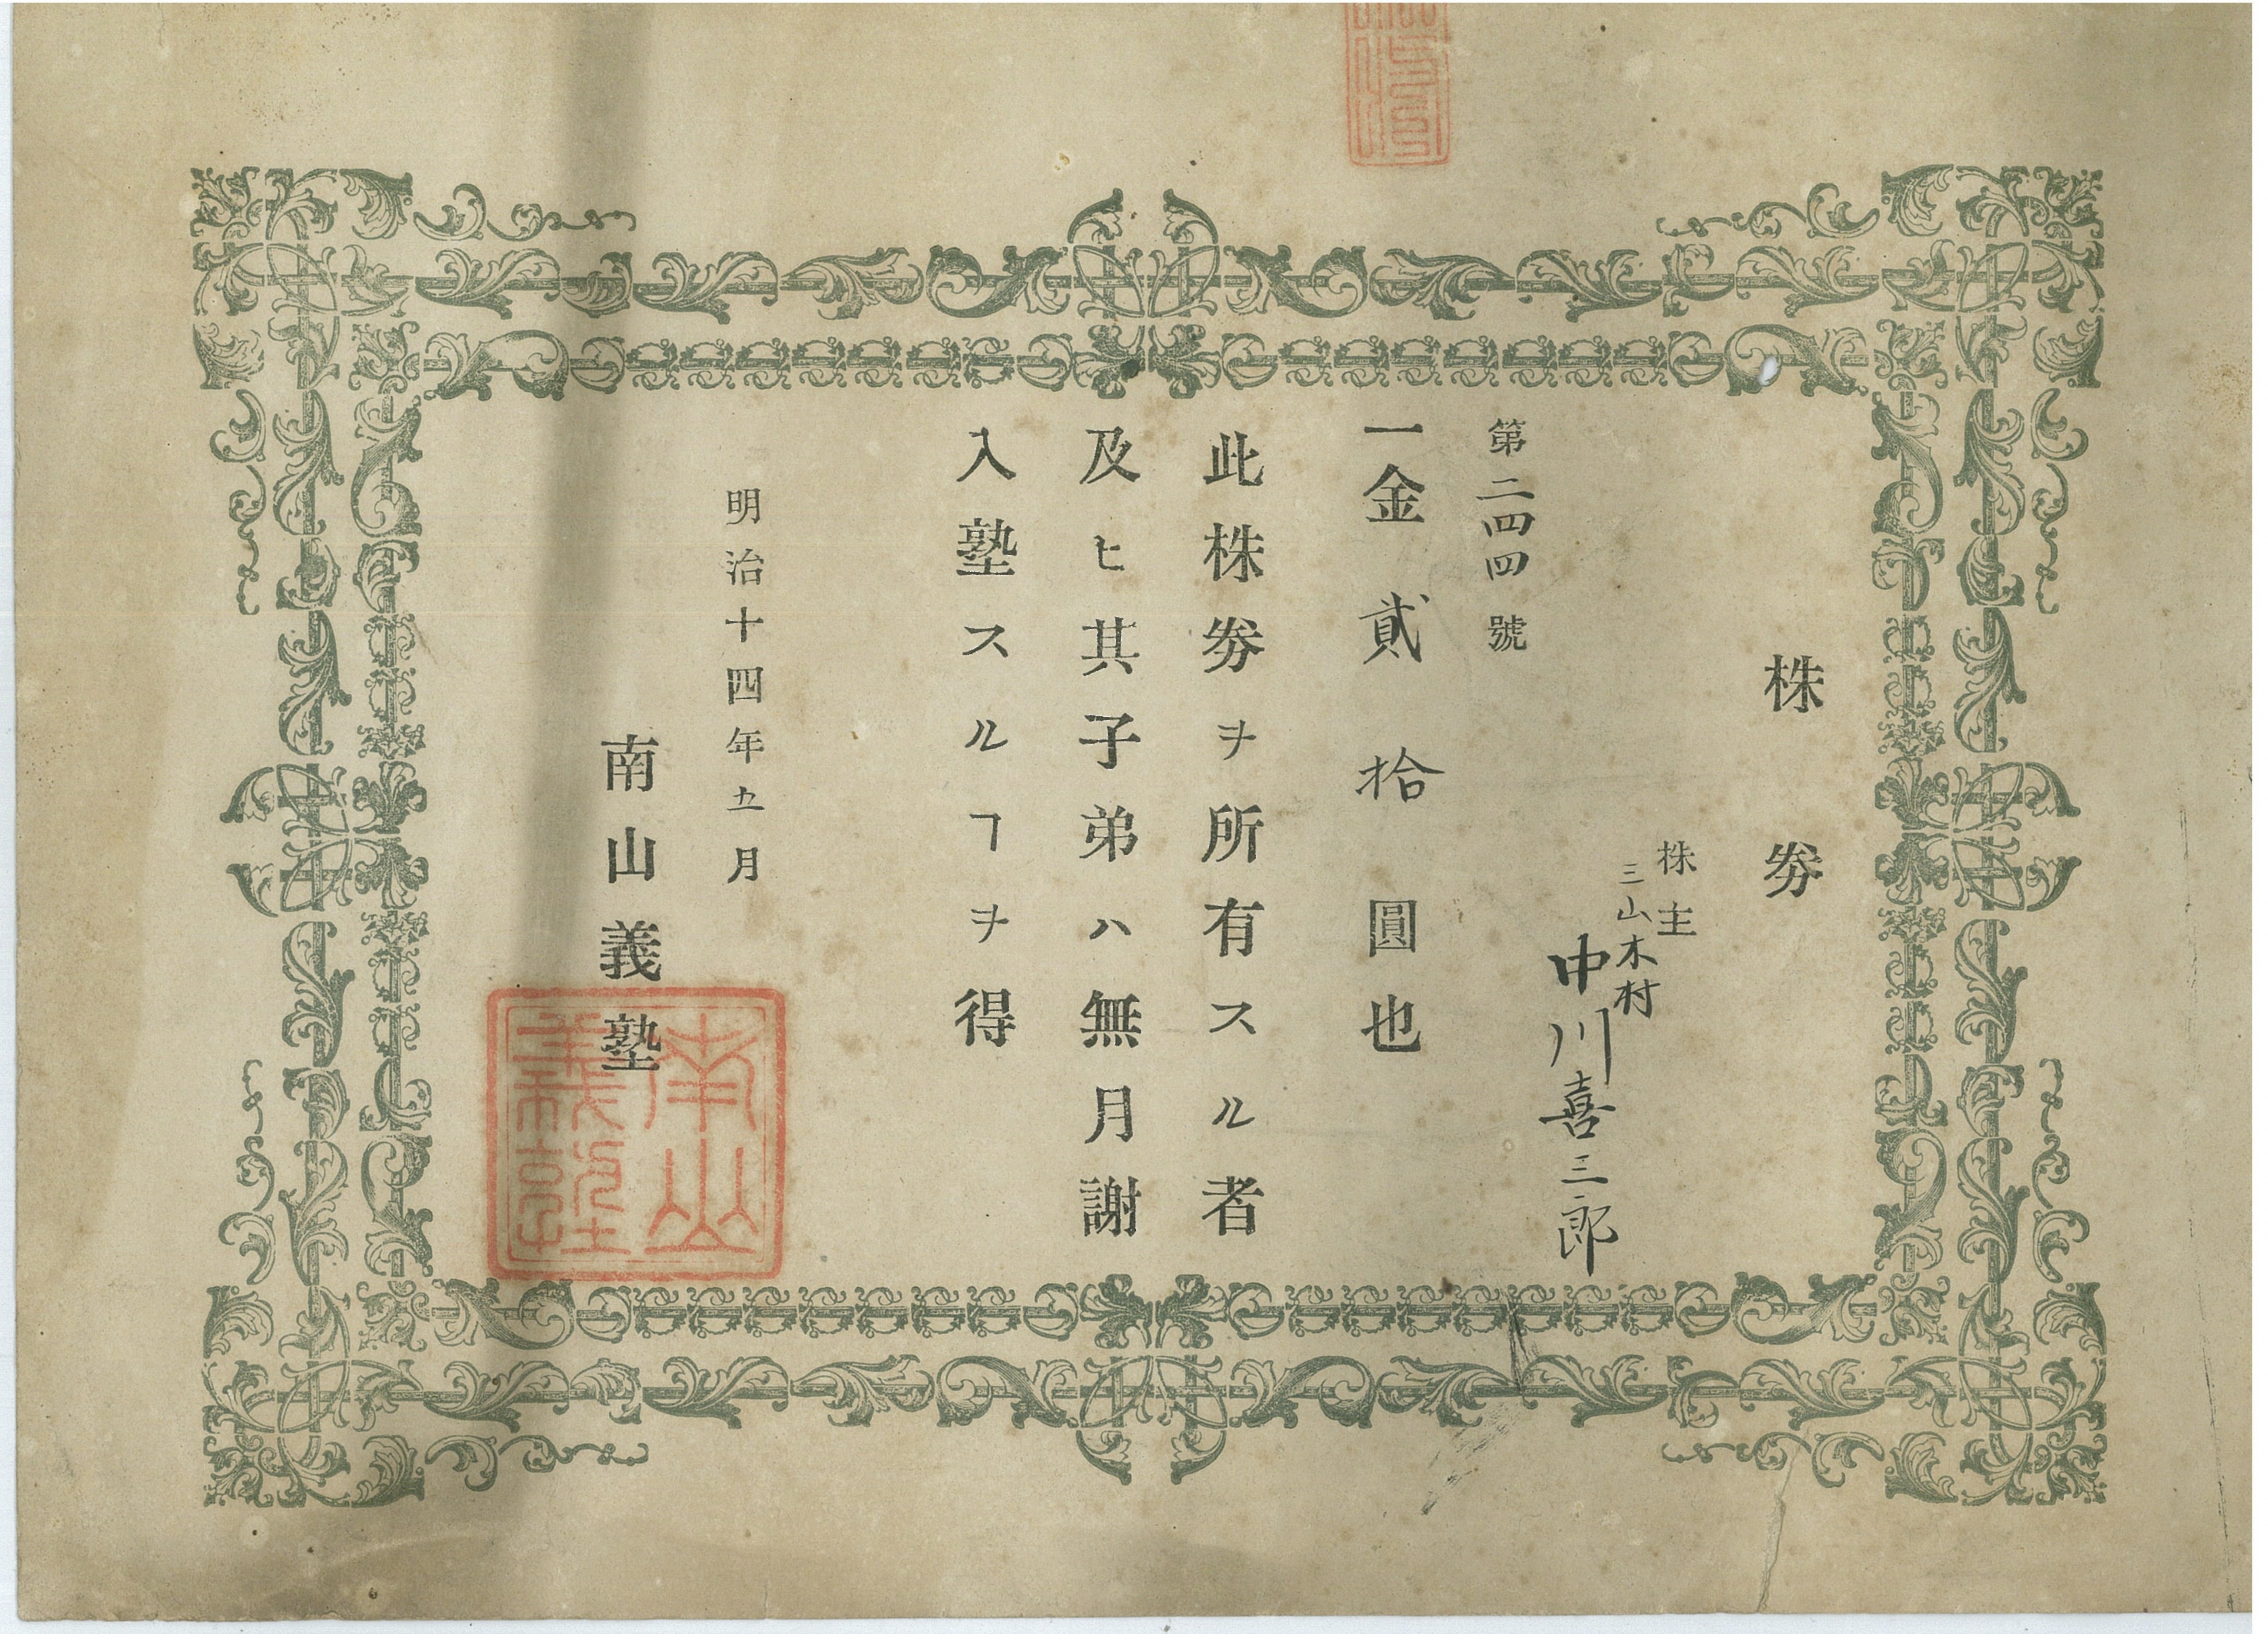 株劵
株主
三山木村
中川喜三郎
第二四四號
一金貳拾圓也
此株劵ヲ所有スル者
及ヒ其子弟ハ無月謝
入塾スルヿヲ得
明治十四年五月
南山義塾
南山
義塾